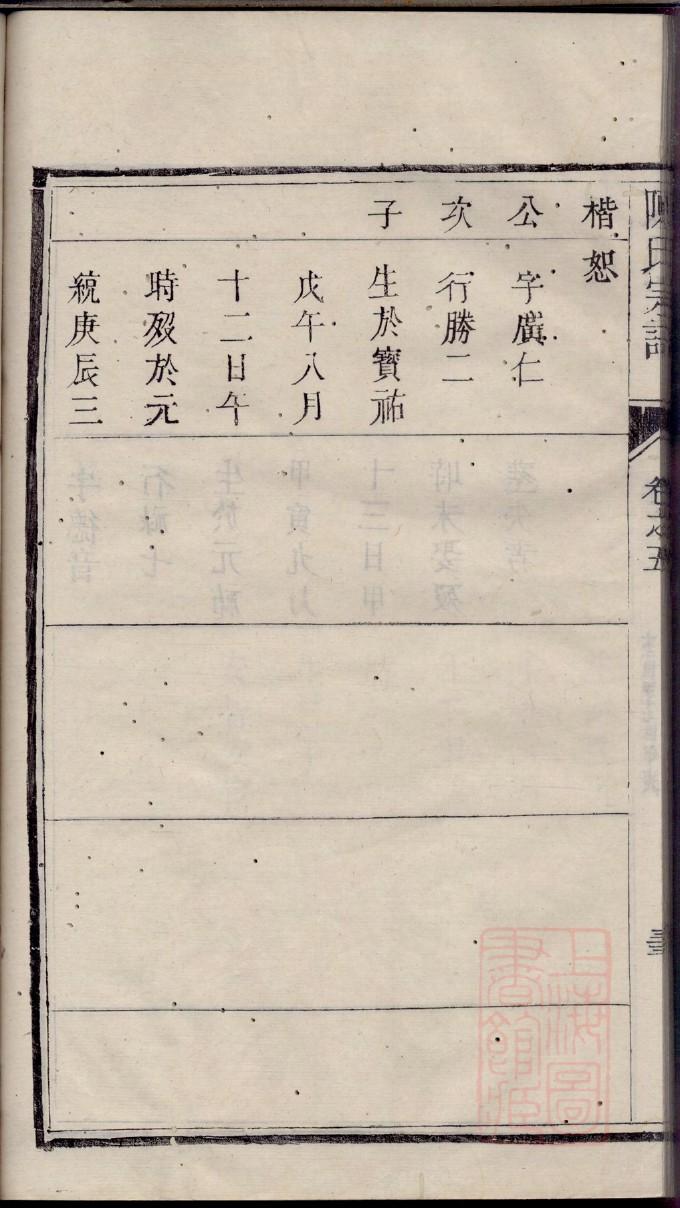 陳氏宗譜
卷之五
楷公次子
恕
字廣仁
行勝二
生於寶祐
戊午八月
十二日午
時歿於元
統庚辰三
上海圖
書館藏